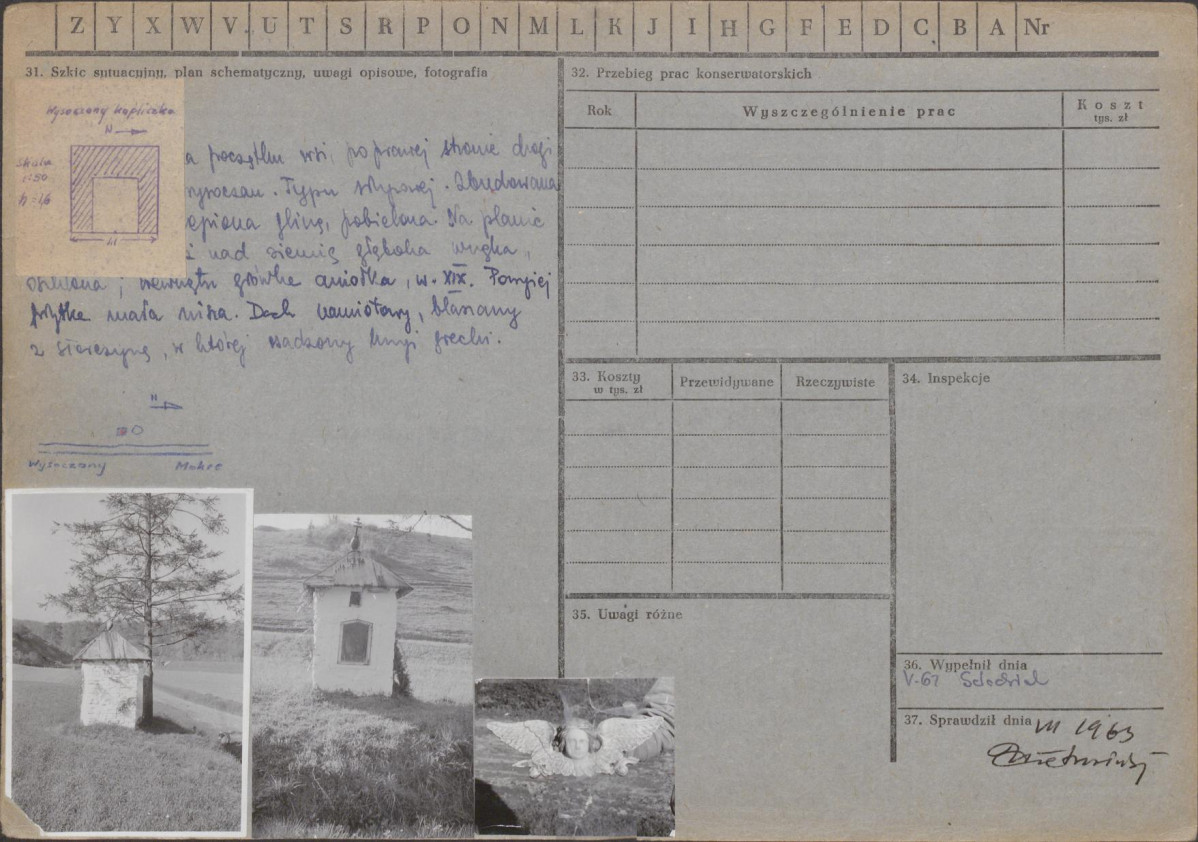 Z Y X W V U T S R P O N M L K J I H G F E D C B A Nr
31. Szkic sytuacyjny, plan schematyczny, uwagi opisowe, fotografia
Wysoczany kapliczka
N
skala
1:50
h=1,6
a początku wsi, po prawej stronie drogi
Typu słupowej. Zbudowana
epiona gliną, pobielona. Na planie
nad ziemią głęboka wnęka,
oszklona; wewnątrz główka aniołka, w. XIX. Powyżej
płytka mała nisza. Dach namiotowy, blaszany
z sterczyną, w której osadzony krzyż grecki.
N
Wysoczany Mokre
32. Przebieg prac konserwatorskich
Rok Wyszczególnienie prac Koszt
tys. zł
33. Koszty Przewidywane Rzeczywiste
w tys. zł
34. Inspekcje
35. Uwagi różne
36. Wypełnił dnia
V-61
37. Sprawdził dnia VII 1963